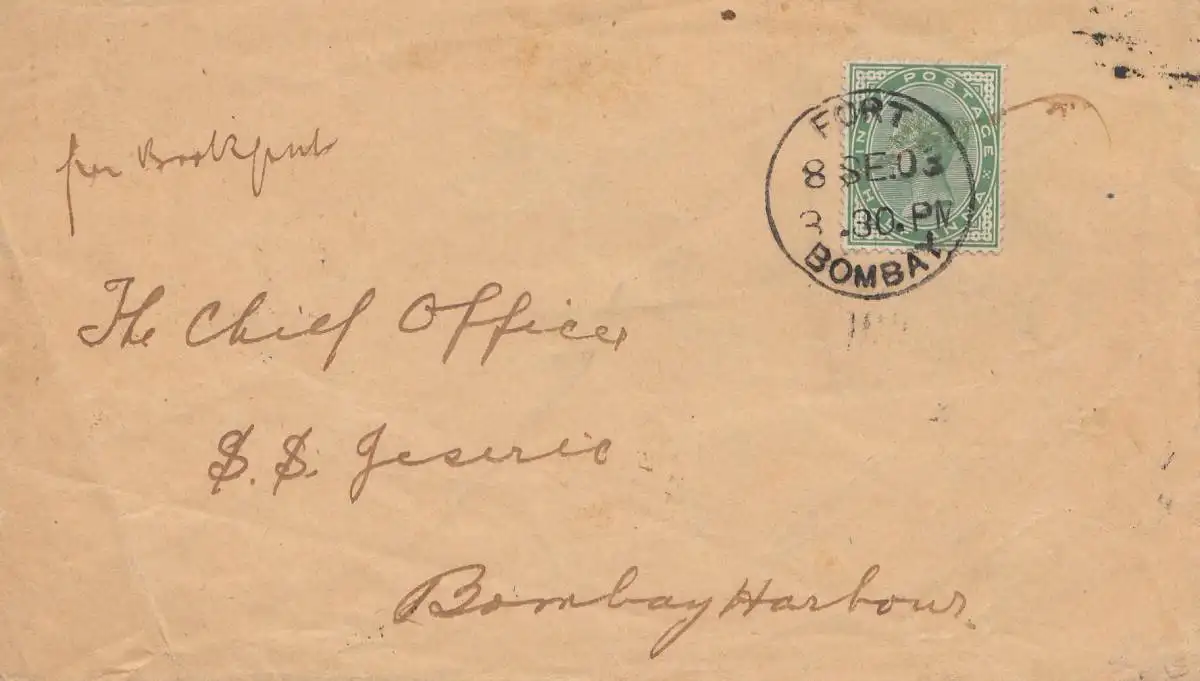 per Bookpost
FORT
8 SE.03
3.30.PM
BOMBAY
INDIA POSTAGE
HALF ANNA
The Chief Officer
S.S. Jeseric
Bombay Harbour